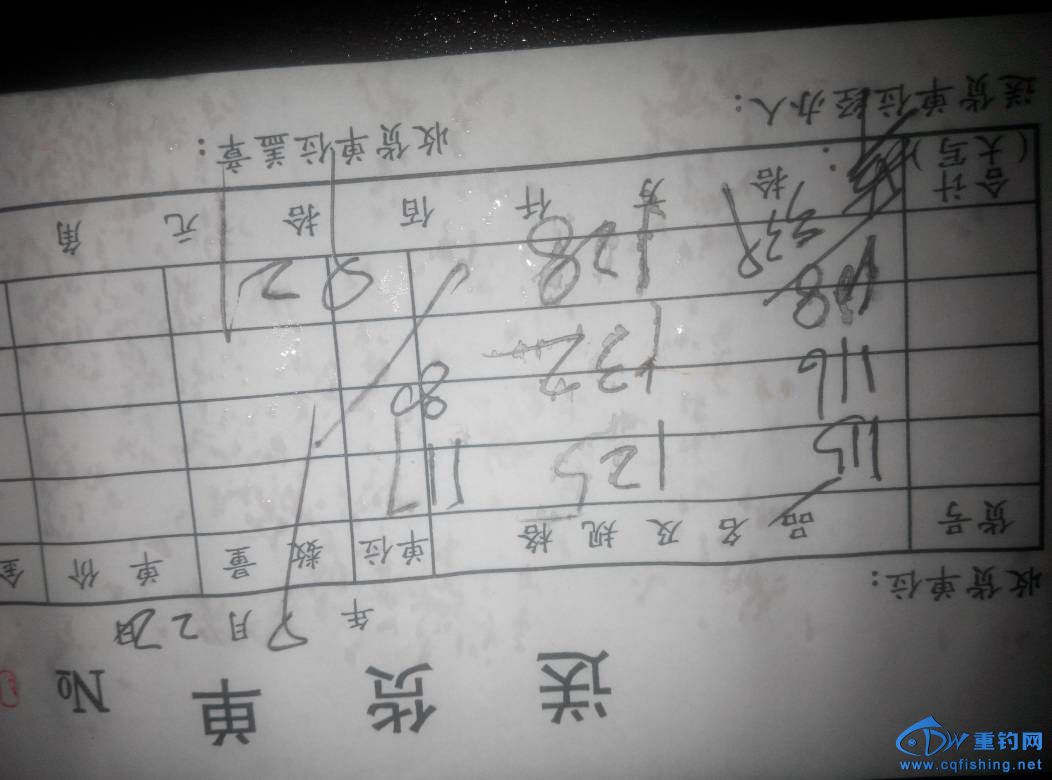 送货单 №
年 月 日
收货单位：
货号 品名及规格 单位 数量 单价
115 125
116 132 80
128
合计（大写）： 拾 万 仟 佰 拾 元 角
送货单位经办人： 收货单位盖章：
重钓网
www.cqfishing.net